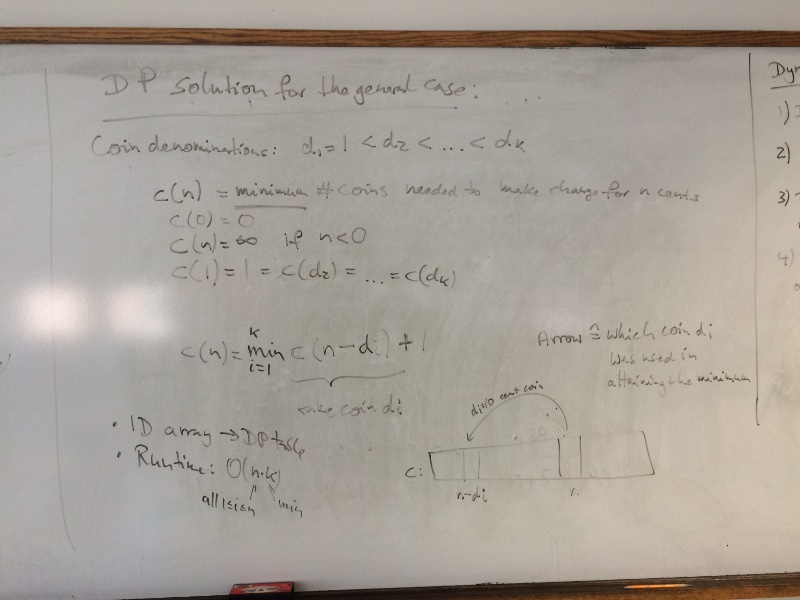 DP solution for the general case: ...
Coin denominations: d₁=1 < d₂ < ... < dₖ
c(n) = minimum # coins needed to make change for n cents
c(0) = 0
c(n) = ∞ if n<0
c(1) = 1 = c(d₂) = ... = c(dₖ)
k
c(n) = min c(n-dᵢ) + 1
i=1
take coin dᵢ
Arrow ≅ which coin dᵢ
was used in
attaining the minimum
• 1D array → DP table
• Runtime: O(n·k)
all 1≤i≤n min
dᵢ=10 cent coin
c:
n-dᵢ n
Dyn
1)
2)
3)
4)